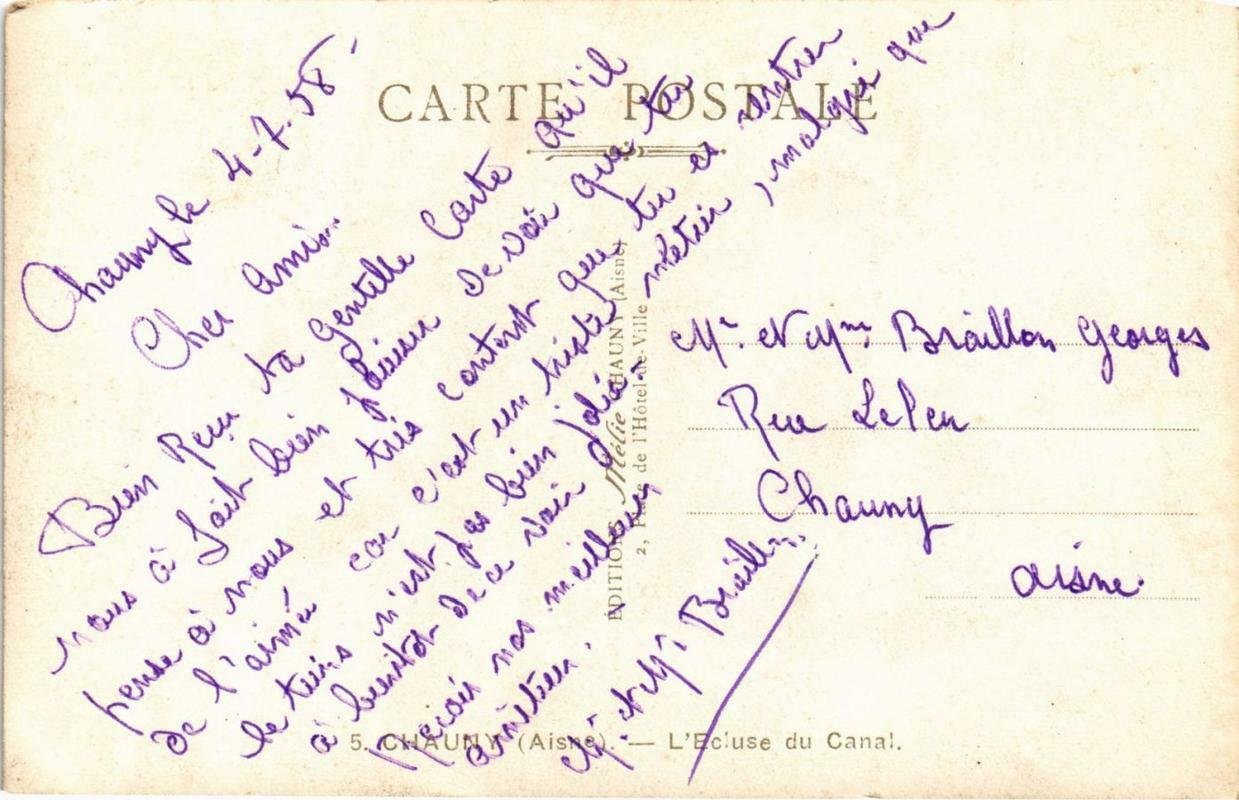 CARTE POSTALE
Chauny le 4-7-58-
Cher Amis..
Bien Reçu ta Gentelle Carte qu'il
nous à fait bien plaisir de voir que tu
pense à nous et très content que tu es rentrer
de l'aimé car c'est un triste métier, malgré que
le tems n'est pas bien Jolie.
à bientot de ce voir
Reçois nos meilleurs
amitiées.
Mr. et Mme Braillon
EDITIONS Mélie CHAUNY (Aisne)
2, Place de l'Hôtel-de-Ville
Mr. et Mme Braillon Georges
Rue Lelen
Chauny
Aisne.
5. CHAUNY (Aisne). — L'Ecluse du Canal.